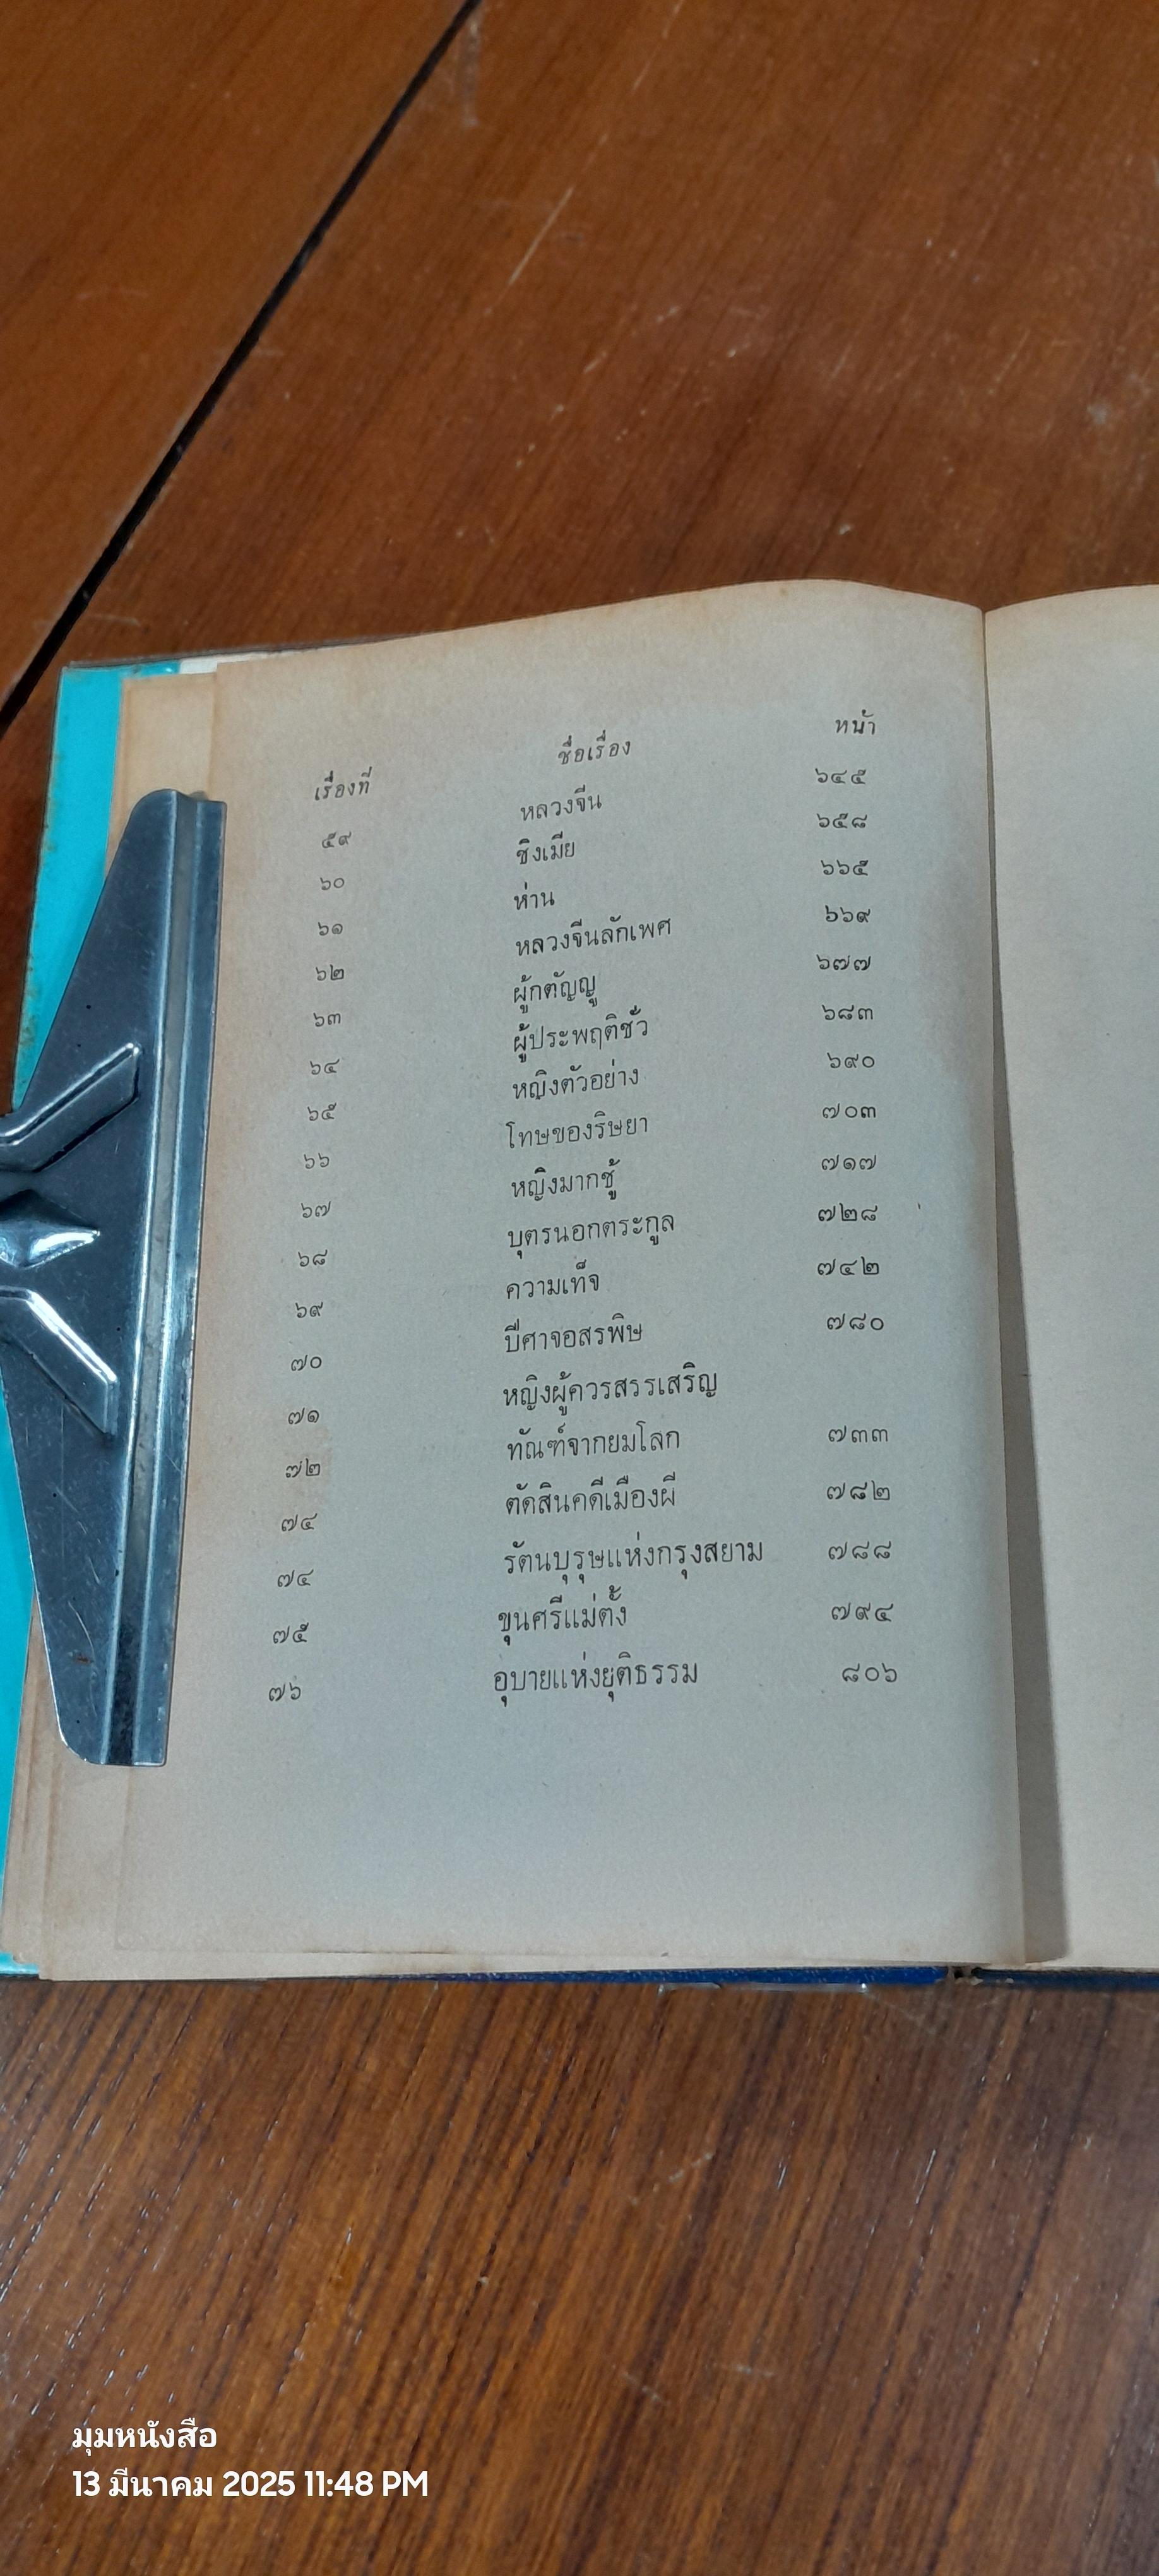 เรื่องที่ ชื่อเรื่อง หน้า
๕๙ หลวงจีน ๖๔๕
๖๐ ซิงเมีย ๖๕๘
๖๑ ห่าน ๖๖๕
๖๒ หลวงจีนลักเพศ ๖๖๙
๖๓ ผู้กตัญญู ๖๗๗
๖๔ ผู้ประพฤติชั่ว ๖๘๓
๖๕ หญิงตัวอย่าง ๖๙๐
๖๖ โทษของริษยา ๗๐๓
๖๗ หญิงมากชู้ ๗๑๗
๖๘ บุตรนอกตระกูล ๗๒๘
๖๙ ความเท็จ ๗๔๒
๗๐ ปีศาจอสรพิษ ๗๘๐
๗๑ หญิงผู้ควรสรรเสริญ
๗๒ ทัณฑ์จากยมโลก ๗๓๓
๗๔ ตัดสินคดีเมืองผี ๗๘๒
๗๔ รัตนบุรุษแห่งกรุงสยาม ๗๘๘
๗๕ ขุนศรีแม่ตั้ง ๗๙๔
๗๖ อุบายแห่งยุติธรรม ๘๐๖
มุมหนังสือ
13 มีนาคม 2025 11:48 PM